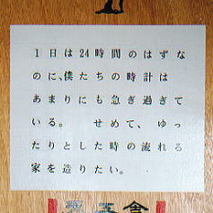 1日は24時間のはずな
のに、僕たちの時計は
あまりにも急ぎ過ぎて
いる。 せめて、ゆっ
たりとした時の流れる
家を造りたい。